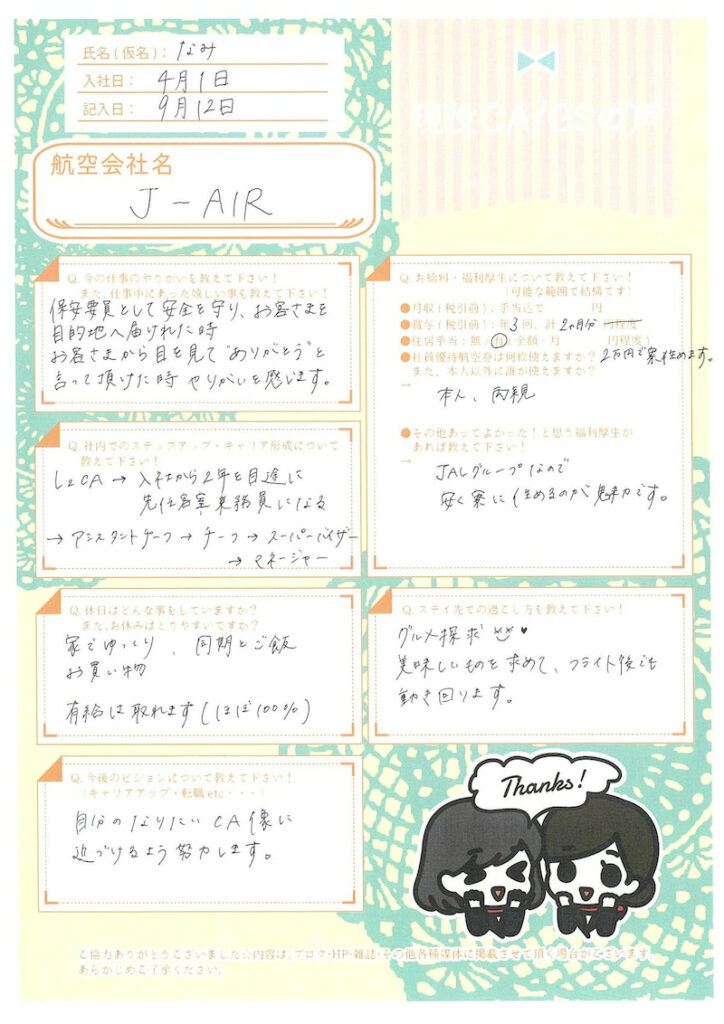 氏名(仮名): なみ
入社日: 4月1日
記入日: 9月12日
現役CA/GSの声
航空会社名
J-AIR
Q. 今の仕事のやりがいを教えて下さい!
また、仕事中にあった嬉しい事も教えて下さい!
保安要員として安全を守り、お客さまを
目的地へ届けれた時
お客さまから目を見て"ありがとう"と
言って頂けた時 やりがいを感じます。
Q. お給料・福利厚生について教えて下さい!
(可能な範囲で結構です)
●月収(税引前): 手当込で 円
●賞与(税引前): 年3回、計 2ヵ月分 円程度
●住居手当: 無/有(全額・月 円程度)
2万円で寮住めます。
●社員優待航空券は何枚使えますか?
また、本人以外に誰が使えますか?
→ 本人、両親
●その他あってよかった!と思う福利厚生が
あれば教えて下さい!
→ JALグループなので
安く寮に住めるのが魅力です。
Q. 社内でのステップアップ・キャリア形成について
教えて下さい!
CA → 入社から2年を目途に
先任客室乗務員になる
→ アシスタントチーフ → チーフ → スーパーバイザー
→ マネージャー
Q. 休日はどんな事をしていますか?
また、お休みはとりやすいですか?
家でゆっくり、同期とご飯
お買い物
有給は取れます(ほぼ100%)
Q. ステイ先での過ごし方を教えて下さい!
グルメ探求
美味しいものを求めて、フライト後でも
動き回ります。
Q. 今後のビジョンについて教えて下さい!
(キャリアアップ・転職etc・・・)
自分のなりたいCA像に
近づけるよう努力します。
Thanks!
ご協力ありがとうございました☆内容は、ブログ・HP・雑誌・その他各種媒体に掲載させて頂く場合がございます。
あらかじめご了承ください。